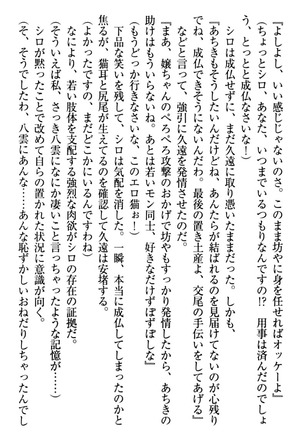 『よしよし、いい感じじゃないのさ。このまま坊やに身を任せればオッケーよ』
(ちょっとシロ、あなた、いつまでいるつもりなんですの!? 用事は済んだのでしょ
う、とっとと成仏なさいな!)
シロは成仏せずに、まだ久遠に取り憑いたままだった。しかも、
『あちきもそうしたいんだけどね、あんたらが結ばれるのを見届けてないのが心残り
で、成仏できそうにないんだわ。最後の置き土産よ、交尾の手伝いをしてあげる』
などと言って、強引に久遠を発情させたのだ。
『まあ、嬢ちゃんのぺろぺろ攻撃のおかげで坊やもすっかり発情したから、あちきの
助けはもういらないね。あとは若いモン同士、好きなだけずぼずぼしな』
(もうどっか行きなさいな、このエロ猫ぉ!)
下品な笑いを残して、シロは気配を消した。一瞬、本当に成仏してしまったのかと
焦るが、猫耳と尻尾が生えてるのを確認して久遠は安堵する。
(よかったですの、まだどこかにいるんですわね)
なにより、若い肢体を支配する強烈な肉欲がシロの存在の証拠だ。
(そういえば私、さっき八雲になにか凄いこと言っちゃったような記憶が……)
シロが黙ったことで改めて自らの置かれた状況に意識が向く。
(そ、そうでしたわ、八雲にあんな……あんな恥ずかしいおねだりしちゃったんでし